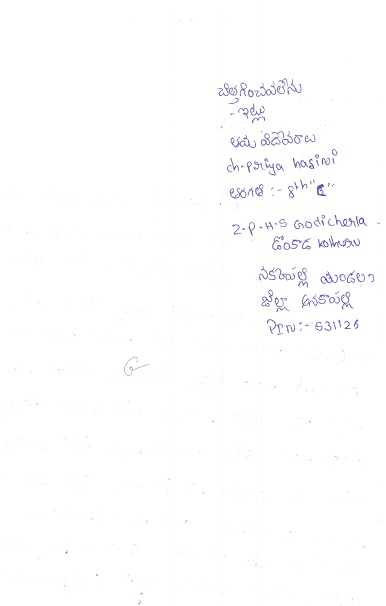 చిత్తగించవలెను
- ఇట్లు
మీ విధేయురాలు
ch-priya hasini
తరగతి :- 8th "E"
Z-P-H-S Godicherla
డొంకాడ kothuru
నక్కపల్లి మండలం
జిల్లా అనకాపల్లి
PIN:- 531126